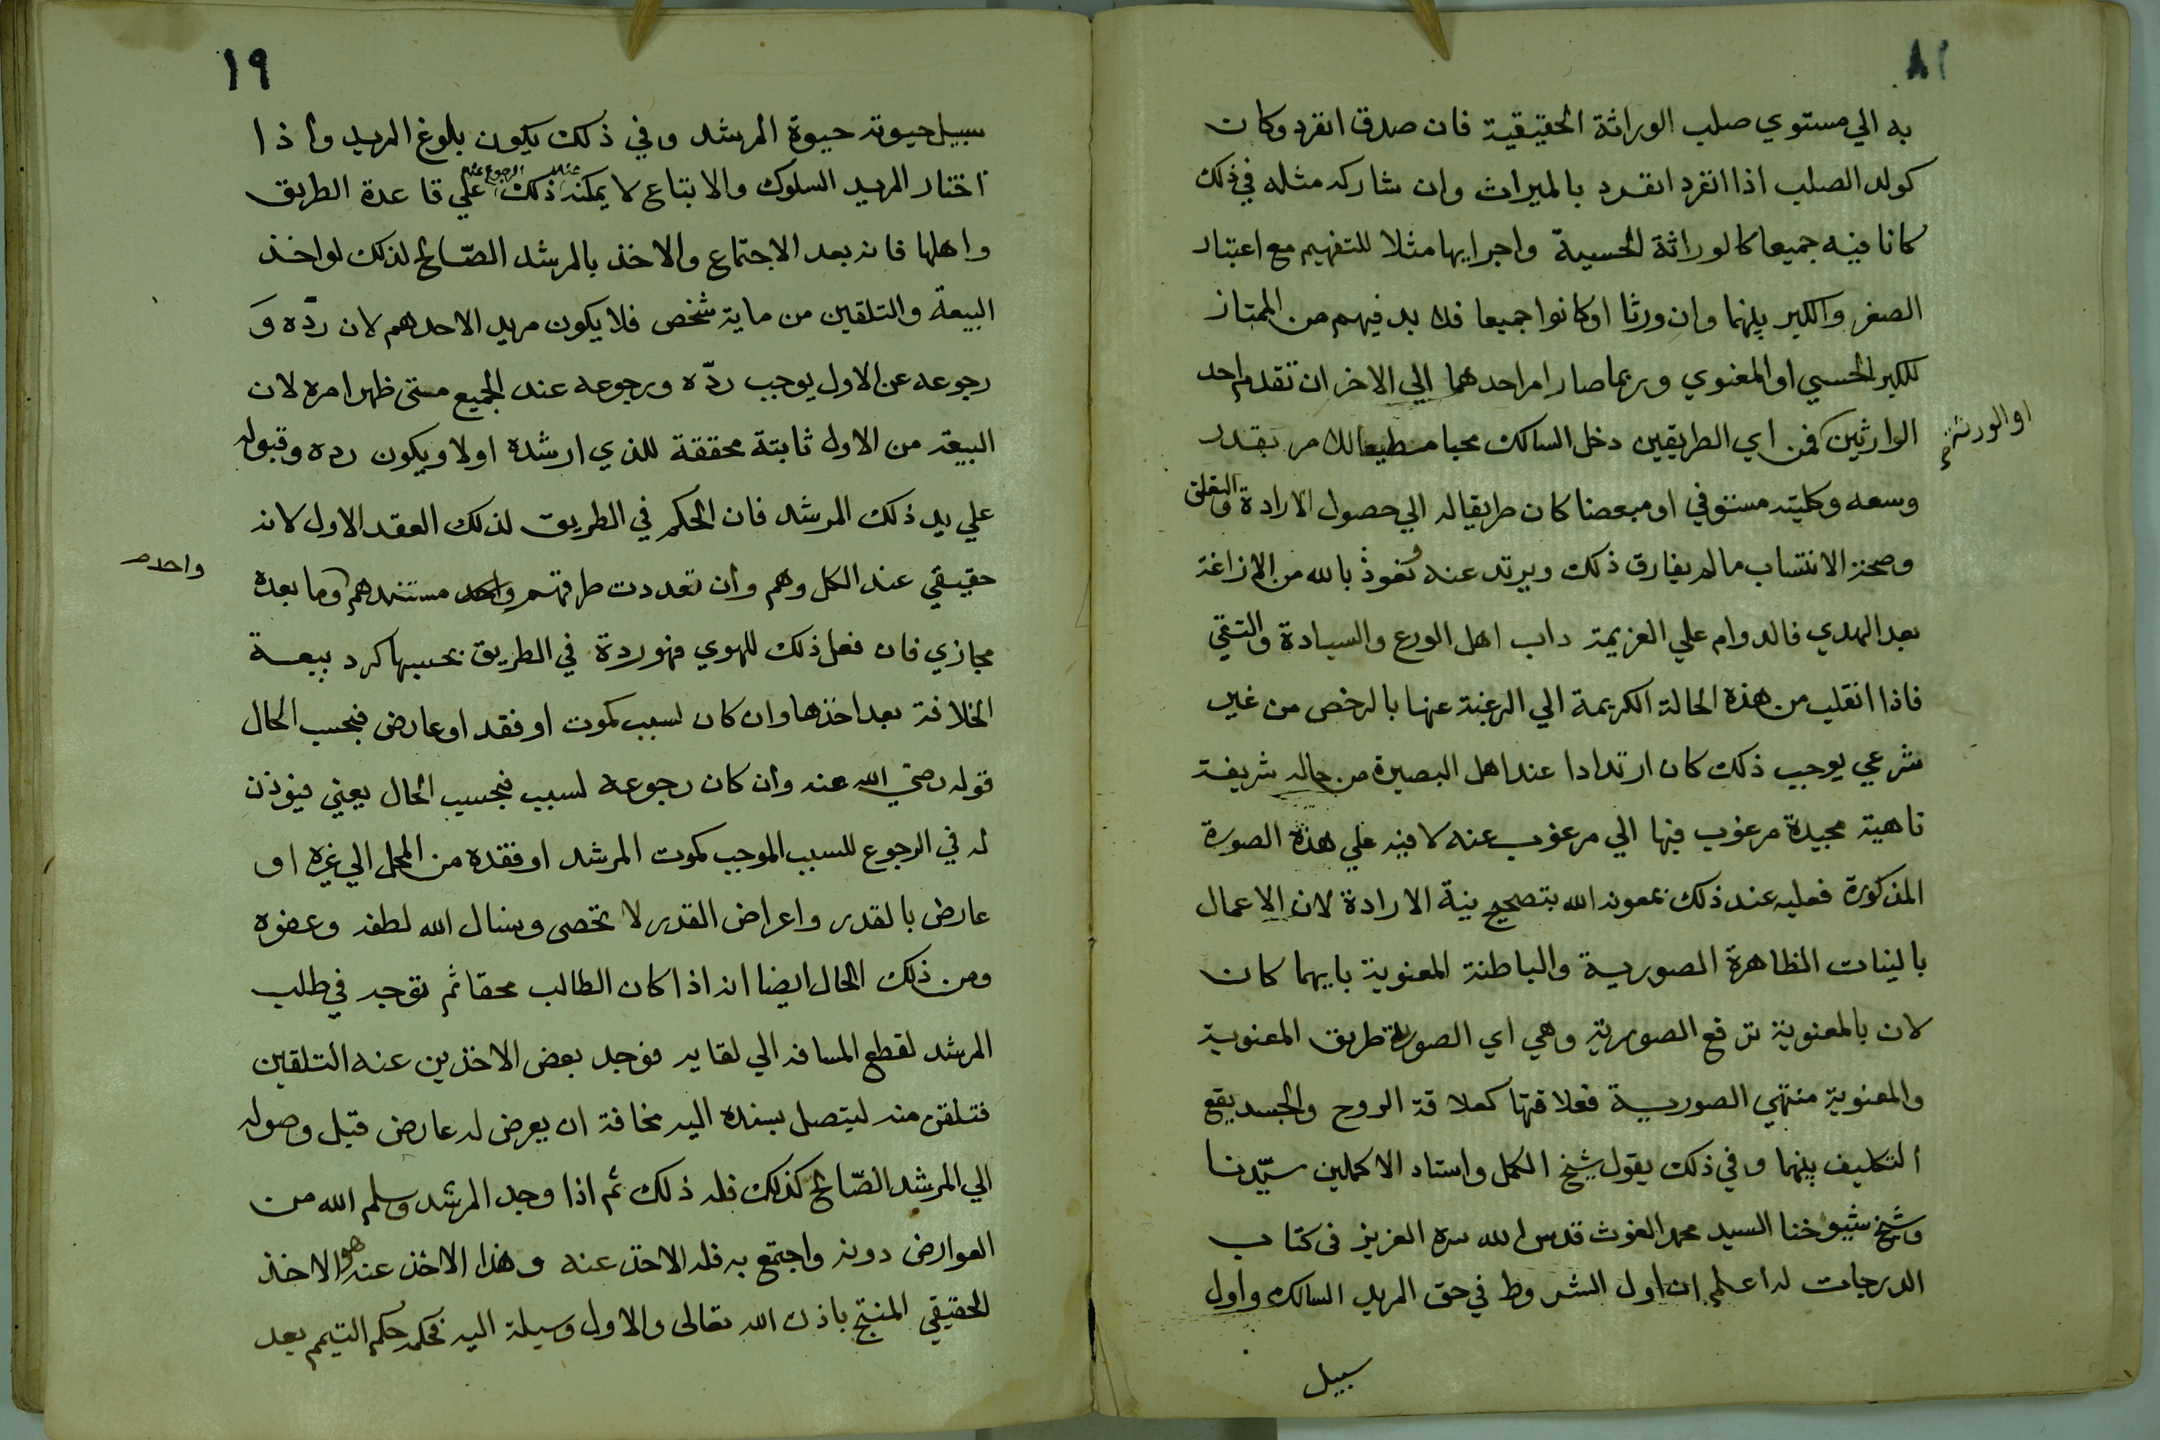 ١٨
به الي مستوي صلب الوراثة الحقيقية فان صدق انفرد وكان
كولد الصلب اذا انفرد انفرد بالميراث وان شاركه مثله في ذلك
كانا فيه جميعا كالوراثة الحسية واجرايها مثلا للتفهيم مع اعتبار
الصغر والكبر بينهما وان ورثا او كانوا جميعا فلا بد فيهم من الممتاز
للكبر الحسي او المعنوي وربما صار امر احدهما الي الاخر ان تقدم احد
الوارثين فمن اي الطريقين دخل السالك محبا مطيعا للامر بقدر
او الورثة
وسعه وكليته مستوفي او مبعضا كان طريقا له الي حصول الارادة والتعلق
وصحة الانتساب ما لم يفارق ذلك ويرتد عنه ونعوذ بالله من الازاغة
بعد الهدي فالدوام علي العزيمة داب اهل الورع والسيادة والتقي
فاذا انقلب من هذه الحالة الكريمة الي الرغبة عنها بالرخص من غير
شرعي يوجب ذلك كان ارتدادا عند اهل البصيرة من حاله شريفة
ناهية مجيدة مرغوب فيها الي مرغوب عنه لا فيه علي هذه الصورة
المذكورة فعليه عند ذلك بمعونة الله بتصحيح نية الارادة لان الاعمال
بالنيات الظاهرة الصورية والباطنة المعنوية بايهما كان
لان بالمعنوية ترفع الصورية وهي اي الصورية طريق المعنوية
والمعنوية منتهي الصورية فعلاقتها كعلاقة الروح والجسد يقع
التكليف بينهما وفي ذلك يقول شيخ الكمل واستاد الاكملين سيّدنا
وشيخ شيوخنا السيد محمد الغوث قدس الله سره العزيز فى كتاب
الدرجات له اعلم ان اول الشروط في حق المريد السالك واول
سبيل
١٩
سبيل حيوته حيوة المرشد وفي ذلك يكون بلوغ المريد واذا
اختار المريد السلوك والاتباع لا يمكنه ذلك علي قاعدة الطريق
عند الرجوع عنه
واهلها فانه بعد الاجتماع والاخذ بالمرشد الصّالح لذلك لو اخذ
البيعة والتلقين من ماية شخص فلا يكون مريد الاحدهم لان ردّه وَ
رجوعه عن الاول يوجب ردّه ورجوعه عند الجميع متى ظهر امره لان
البيعة من الاول ثابتة محققة للذي ارشده اولا ويكون رده وقبوله
علي يد ذلك المرشد فان الحكم في الطريق لذلك العقد الاول لانه
حقيقي عند الكل وهم وان تعددت طرقهم واحد مستندهم وما بعده
واحد
مجازي فان فعل ذلك للهوي فهو ردة في الطريق بحسبها كرد بيعة
الخلافة بعد اخذها وان كان لسبب كموت او فقد او عارض فبحسب الحال
قوله رضي الله عنه وان كان رجوعه لسبب فبحسب الحال يعني فيوذن
له في الرجوع للسبب الموجب كموت المرشد او فقده من المحل الي غيره او
عارض بالقدر واعراض القدر لا تحصى ونسال الله لطفه وعفوه
ومن ذلك الحال ايضا انه اذا كان الطالب محقا ثم توجه في طلب
المرشد لقطع المسافة الي لقايه فوجد بعض الاخذين عنه التلقين
فتلقن منه ليتصل بسنده اليه مخافة ان يعرض له عارض قبل وصوله
الي المرشد الصّالح كذلك فله ذلك ثم اذا وجد المرشد وسلم الله من
العوارض دونه واجتمع به فله الاخذ عنه وهذا الاخذ عنه هو الاخذ
الحقيقي المنتج باذن الله تعالى والاول وسيلة اليه فحكمه حكم التيمم بعد